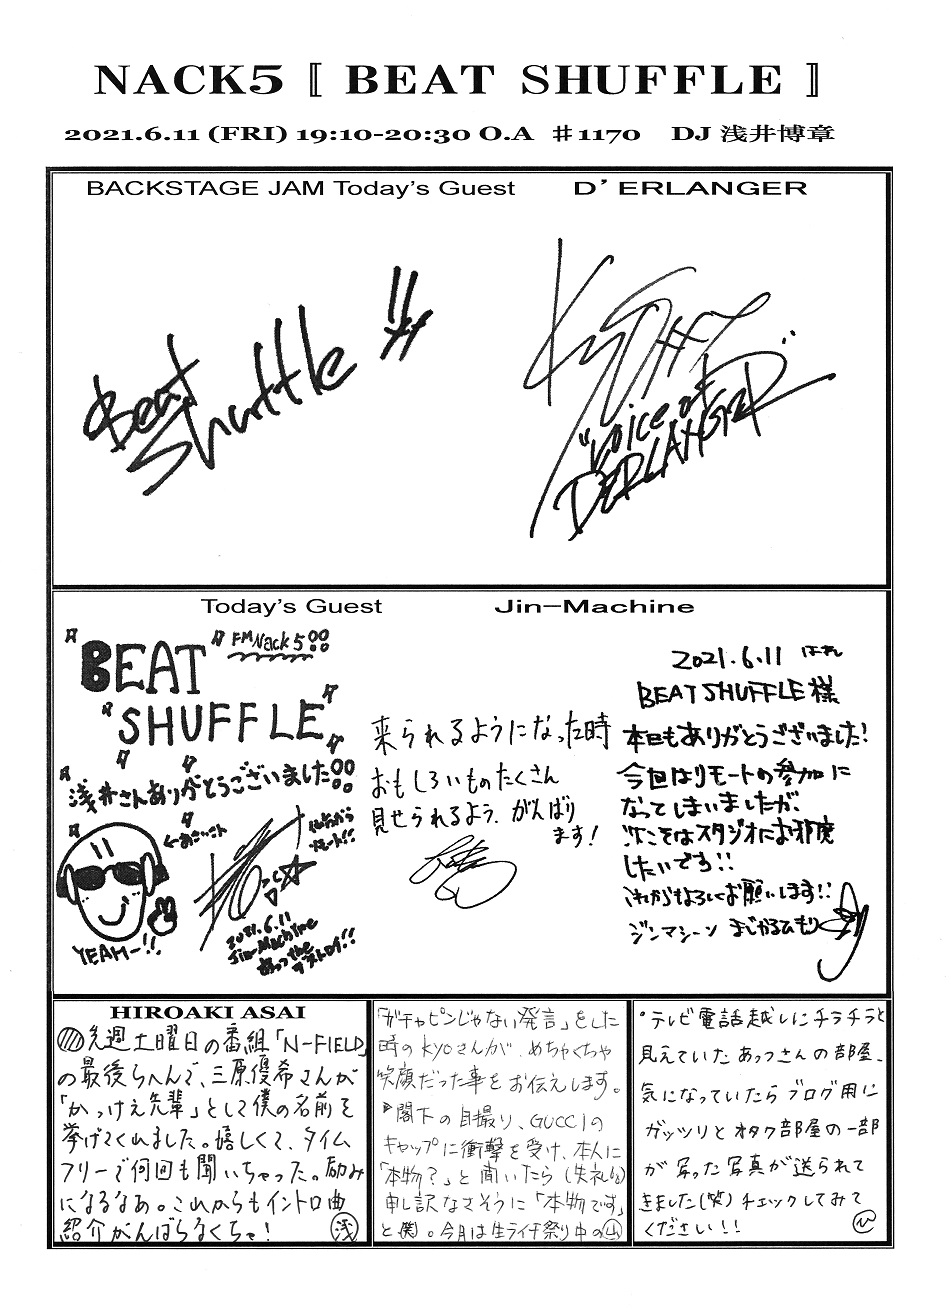 NACK5〚 BEAT SHUFFLE 〛
2021.6.11 (FRI) 19:10-20:30 O.A ♯1170 DJ 浅井博章
BACKSTAGE JAM Today's Guest D' ERLANGER
Beat
Shuffle !!
"Voice of
D'ERLANGER
Today's Guest Jin-Machine
BEAT
FM Nack5!!
SHUFFLE
浅井さんありがとうございました!!
←あさいさん
YEAH-!!
リモート!!
2021.6.11
Jin-Machine
あっつthe
デストロイ!!
来られるようになった時
おもしろいものたくさん
見せられるよう、がんばり
ます!
2021.6.11 はれ
BEAT SHUFFLE 様
本日もありがとうございました!
今回はリモートの参加に
なってしまいましたが、
次こそはスタジオにお邪魔
したいです!!
これからもよろしくお願いします!!
ジンマシーン まじかるひもり
HIROAKI ASAI
先週土曜日の番組「N-FIELD」
の最後らへんで、三原優希さんが
「かっけえ先輩」として僕の名前を
挙げてくれました。嬉しくて、タイム
フリーで何回も聞いちゃった。励み
になるなあ。これからもイントロ曲
紹介がんばらなくちゃ! 浅
「ガチャピンじゃない発言」をした
時のkyoさんが、めちゃくちゃ
笑顔だった事をお伝えします。
閣下の自撮り、GUCCIの
キャップに衝撃を受け、本人に
「本物?」と聞いたら(失礼な)
申し訳なさそうに「本物です」
と(笑)。今月は生ライチ祭り中の山
・テレビ電話越しにチラチラと
見えていたあっつさんの部屋、
気になっていたらブログ用に
ガッツリとオタク部屋の一部
が写った写真が送られて
きました(笑)チェックしてみて
ください!!